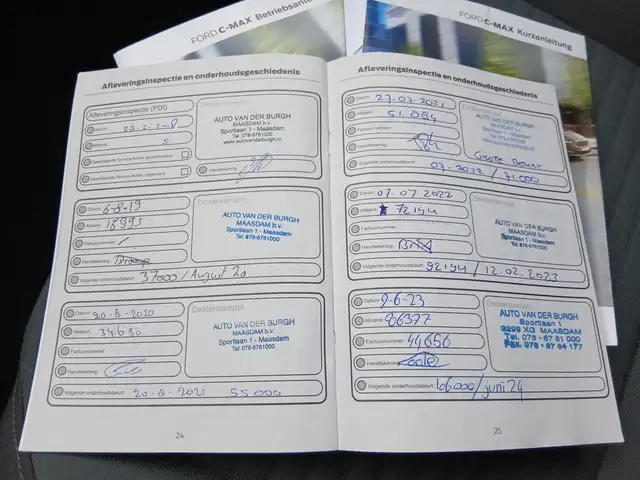 FORD C-MAX Betriebsanl
FORD C-MAX Kurzanleitung
Afleveringsinspectie en onderhoudsgeschiedenis
Afleveringsinspectie (PDI)
Datum:
Afstand:
Handtekening:
Dealerstempel
AUTO VAN DER BURGH
MAASDAM b.v.
Sportlaan 1 - Maasdam
Tel. 078-6761000
www.autovanderburgh.nl
Datum: 6-8-19
Afstand: 16995
Factuurnummer:
Handtekening:
Volgende onderhoudsbeurt: 37000 / August 20
AUTO VAN DER BURGH
MAASDAM b.v.
Sportlaan 1 - Maasdam
Tel. 078-6761000
Datum: 20-8-2020
Afstand: 34680
Factuurnummer:
Handtekening:
Volgende onderhoudsbeurt: 20-8-2021 55000
Dealerstempel
AUTO VAN DER BURGH
MAASDAM b.v.
Sportlaan 1 - Maasdam
Tel. 078-6761000
24
Afleveringsinspectie en onderhoudsgeschiedenis
Datum: 27-07-2021
Afstand: 51.094
Factuurnummer:
Handtekening:
Volgende onderhoudsbeurt: 07-2022 / 71.000
Dealerstempel
AUTO VAN DER BURGH
MAASDAM b.v.
Sportlaan 1 - Maasdam
Tel. 078-6761000
Grote Beurt
Datum: 07.07 2022
Afstand: 72194
Factuurnummer:
Handtekening:
Volgende onderhoudsbeurt: 92194 / 12.02.2023
AUTO VAN DER BURGH
MAASDAM b.v.
Sportlaan 1 - Maasdam
Tel. 078-6761000
Datum: 9-6-23
Afstand: 86377
Factuurnummer: 44656
Handtekening:
Volgende onderhoudsbeurt: 106000 / juni 24
Dealerstempel
AUTO VAN DER BURGH
Sportlaan 1
3299 XG MAASDAM
Tel. 078 - 67 61 000
Fax. 078 - 67 64 177
25